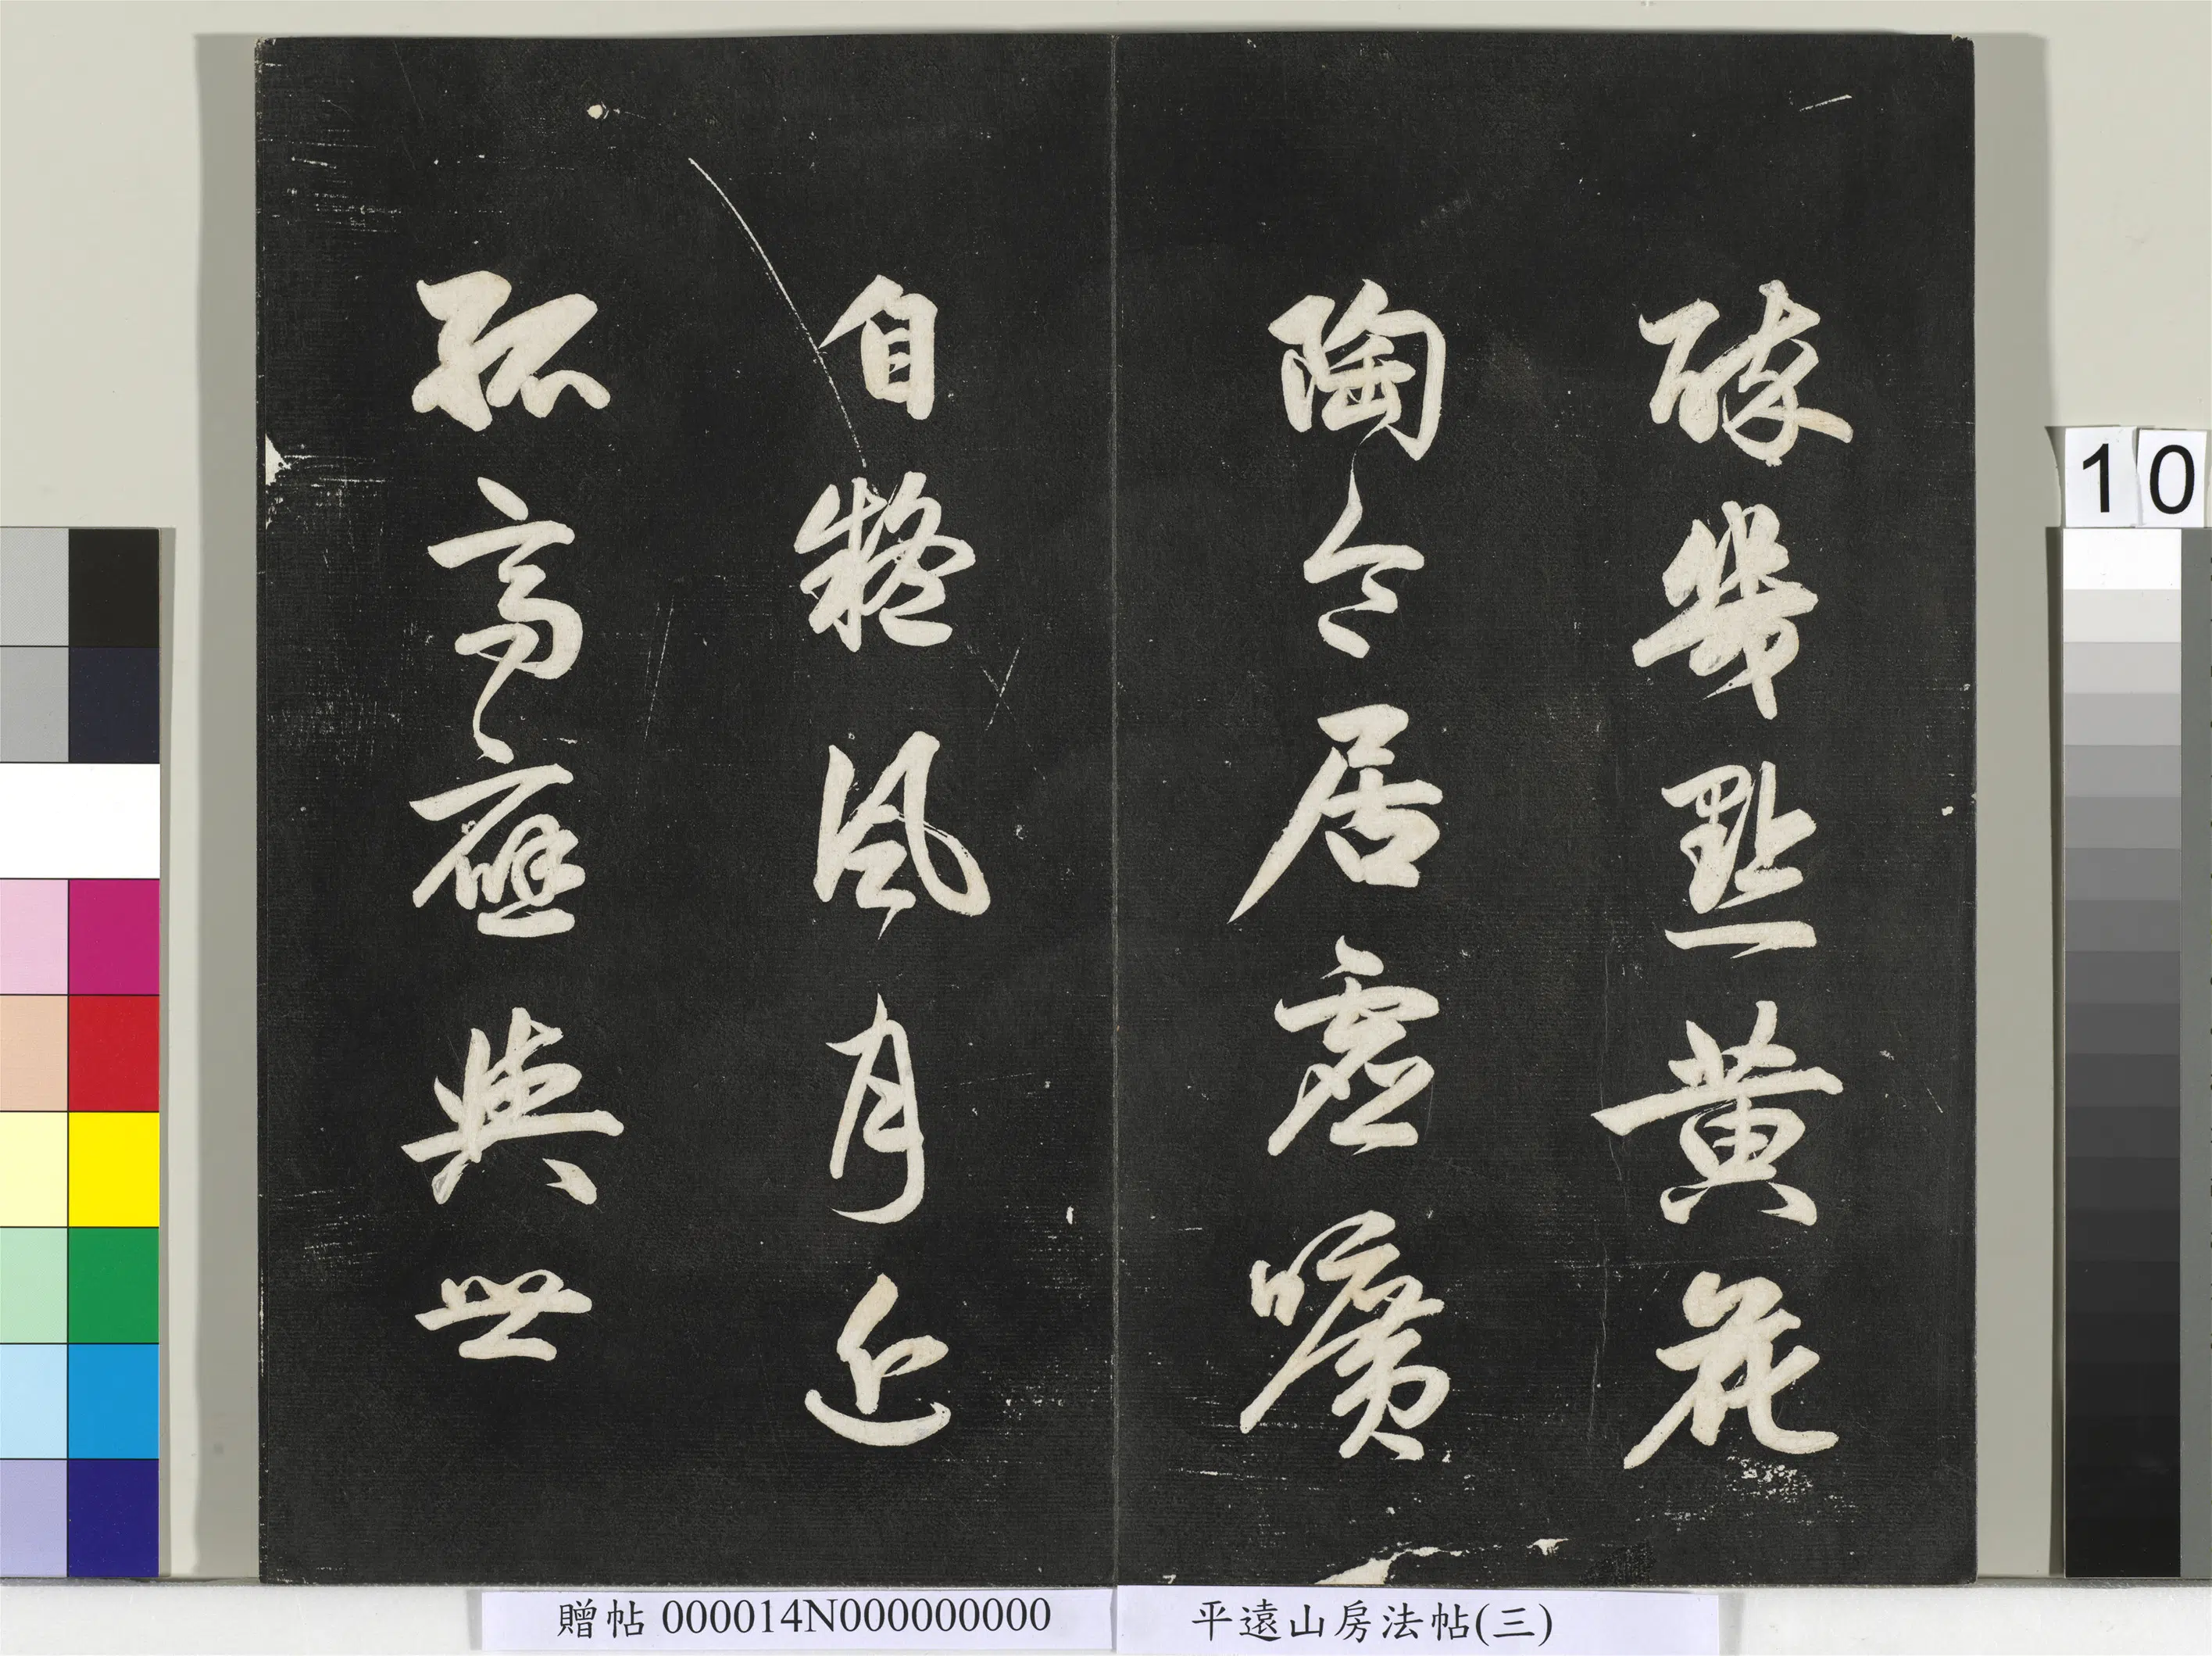 幾點黃花
陶令居虛曠
自凝風月近
孤高應與世
10
贈帖 000014N000000000
平遠山房法帖(三)